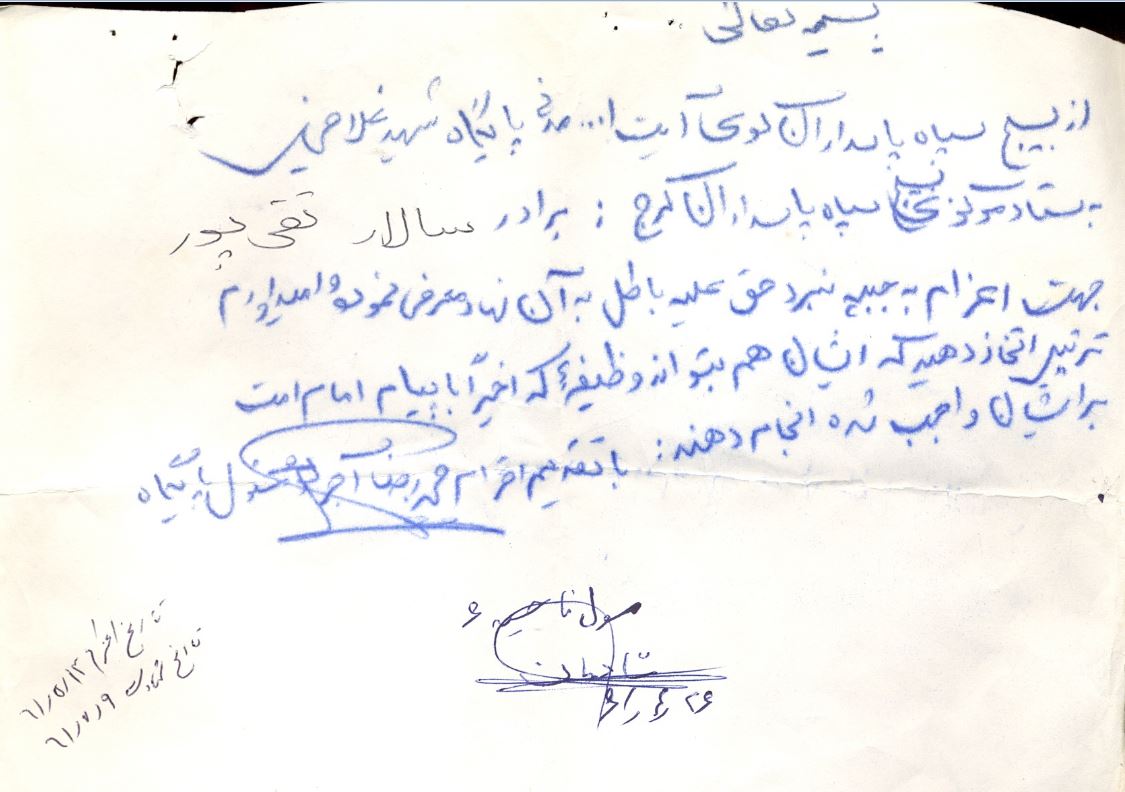 بسمه تعالی
از بسیج سپاه پاسداران کوی آیت ا... مدنی پایگاه شهید غلامی
به ستاد مرکزی بسیج سپاه پاسداران کرج : برادر سالار تقی پور
جهت اعزام به جبهه نبرد حق علیه باطل به آن نهاد معرفی نموده و امیدواریم
ترتیبی اتخاذ دهید که ایشان هم بتواند وظیفه‌ای که اخیراً با پیام امام امت
بر ایشان واجب شده انجام دهند: با تقدیم احترام محمدرضا مسئول پایگاه
مسول ناحیه ۶
۲۶ ر۴ ر۶۱
تاریخ اعزام ۶۱٫۵٫۱۲
تاریخ شهادت ۶۱٫۷٫۹